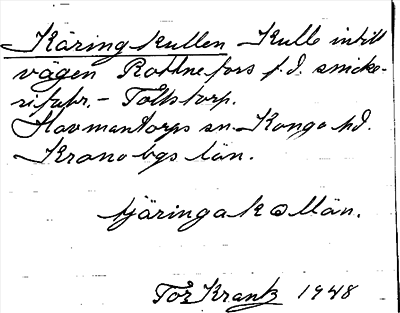 Käringkullen Kulle intill
vägen Rottnefors f.d. snicke-
rifabr. - Tolkstorp.
Hovmantorps sn. Konga hd.
Kronobgs län.
Tor Krantz 1948